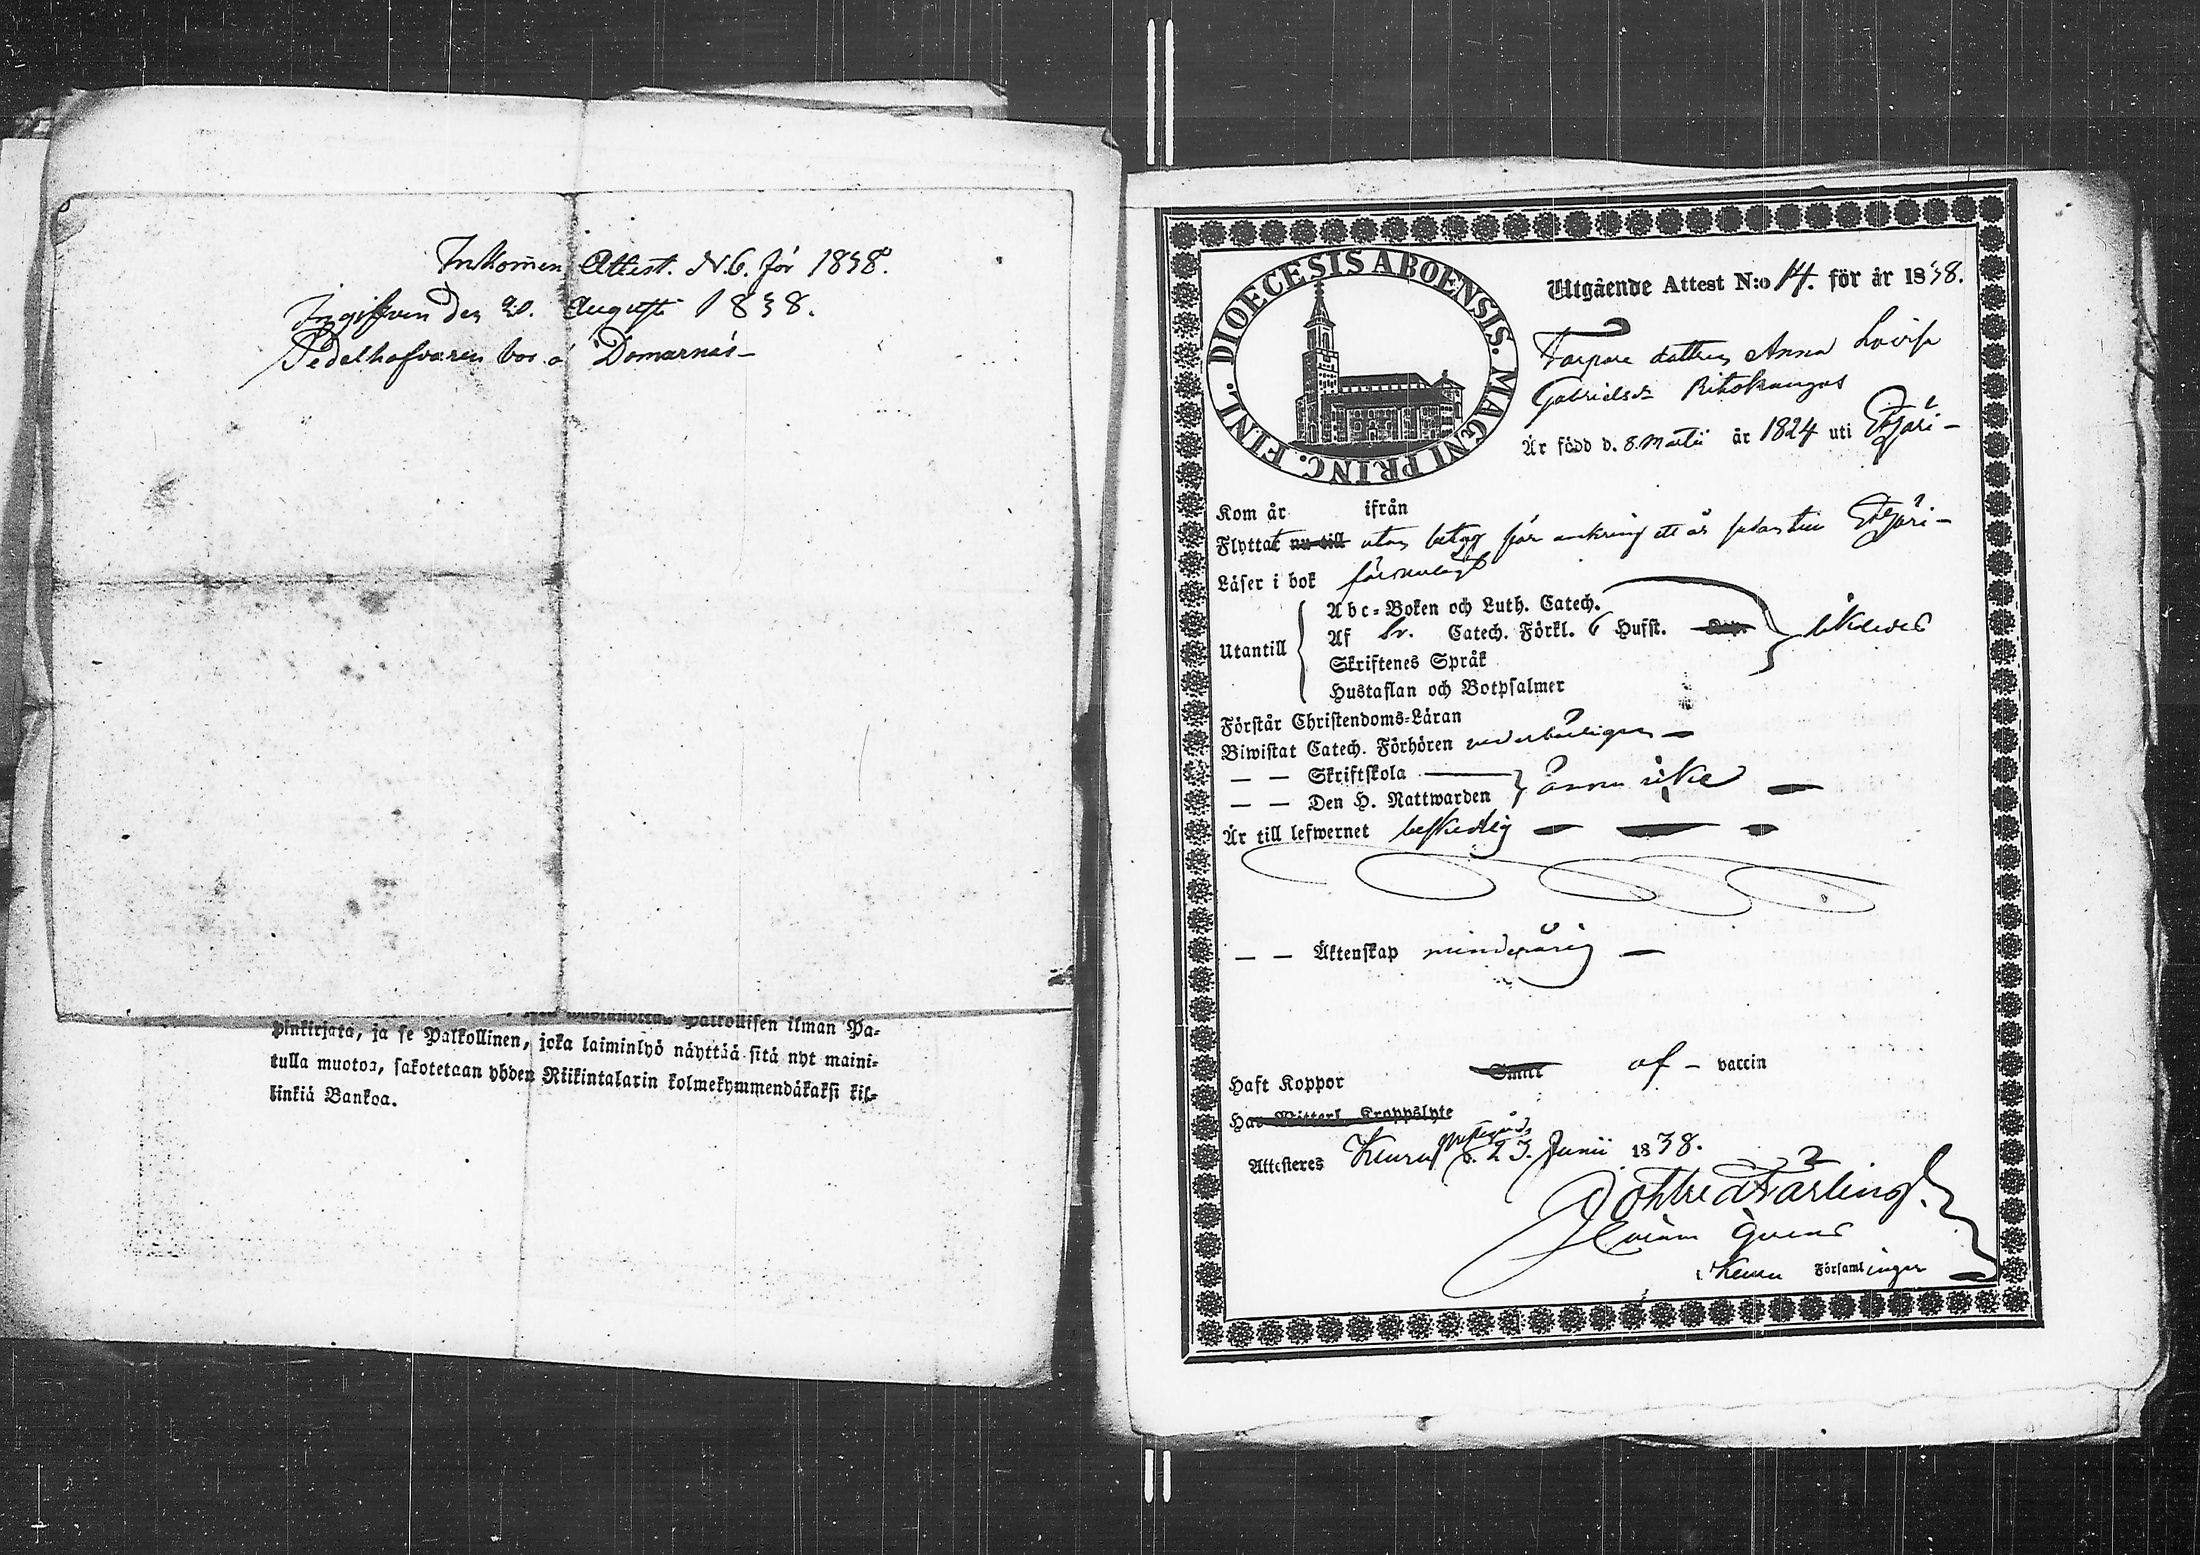 Inkommen Attest. N.6. för 1838.
Ingifven den 20. Augusti 1838.
bor å Domarnäs
pinkirjata, ja se Palkollinen, joka laiminlyö näyttää sitä nyt maini-
tulla muotoa, sakotetaan yhden Riikintalarin kolmekymmendäkaksi kil-
linkiä Bankoa.
DIOECESIS ABOENSIS. MAGNI PRINC. FINL.
Utgående Attest N:o 14. för år 1838.
Torpare dottren Anna Lovisa
Gabrielsdr Ritokangas
Är född d. 8. Martii år 1824 uti Etzäri
Kom år ifrån
Flyttat nu till utan betyg för omkring ett år sedan till Etzäri
Läser i bok försvarligt
Utantill
Abc-Boken och Luth. Catech.
Af Sv. Catech. Förkl. 6 Hufst.
Skriftenes Språk
Hustaflan och Botpsalmer
likaledes
Förstår Christendoms-Läran
Biwistat Catech. Förhören vederbörligen
— — Skriftskola
— — Den H. Nattwarden
ännu icke
Är till lefwernet beskedlig
— — Äktenskap minderårig
Haft Koppor Smitt af - vaccin
Har Witterl. Kroppslyte
Attesteres Keuru d. 23. Junii 1838.
i Keuru Församlingar